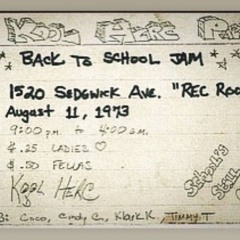 KOOL HERC
BACK TO SCHOOL JAM
1520 SEDGWICK AVE. "REC ROO
August 11, 1973
9:00 p.m. to 4:00 a.m.
$.25 LADIES ♡
$.50 FELLAS
KOOL HERC
Coco, Cindy C., Klark K., Timmy T